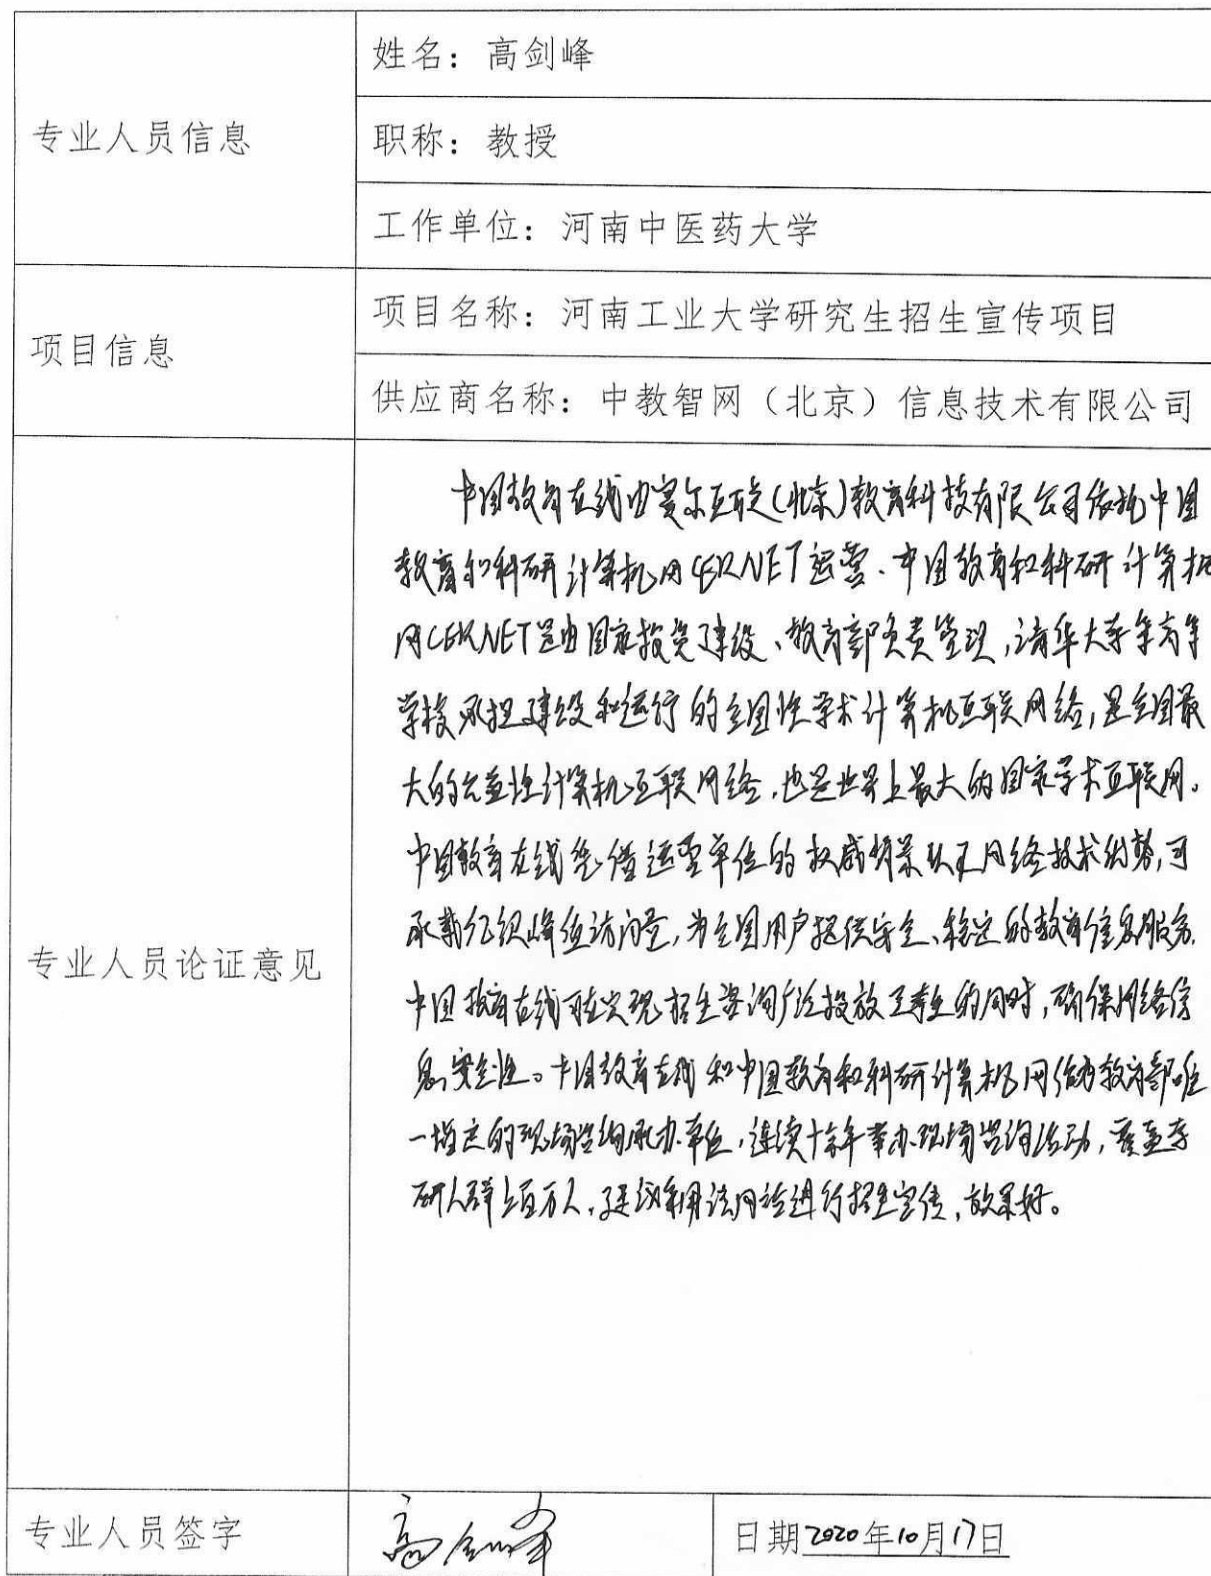 姓名：高剑峰
专业人员信息
职称：教授
工作单位：河南中医药大学
项目信息
项目名称：河南工业大学研究生招生宣传项目
供应商名称：中教智网（北京）信息技术有限公司
专业人员论证意见
中国教育在线由赛尔互联（北京）教育科技有限公司依托中国
教育和科研计算机网CERNET运营、中国教育和科研计算机
网CERNET是由国家投资建设、教育部负责管理，清华大学等高等
学校承担建设和运行的全国性学术计算机互联网络，是全国最
大的公益性计算机互联网络，也是世界上最大的国家学术互联网。
中国教育在线凭借运营单位的权威背景以及网络技术优势，可
承载亿级峰值访问量，为全国用户提供安全、稳定的教育信息服务.
中国教育在线可在实现招生咨询广泛投放至考生的同时，确保网络信
息安全性。中国教育在线和中国教育和科研计算机网作为教育部唯
一指定的现场咨询承办单位，连续十余年举办现场咨询活动，覆盖考
研人群上百万人，建议采用该网站进行招生宣传，效果好。
专业人员签字
高剑峰
日期2020年10月17日